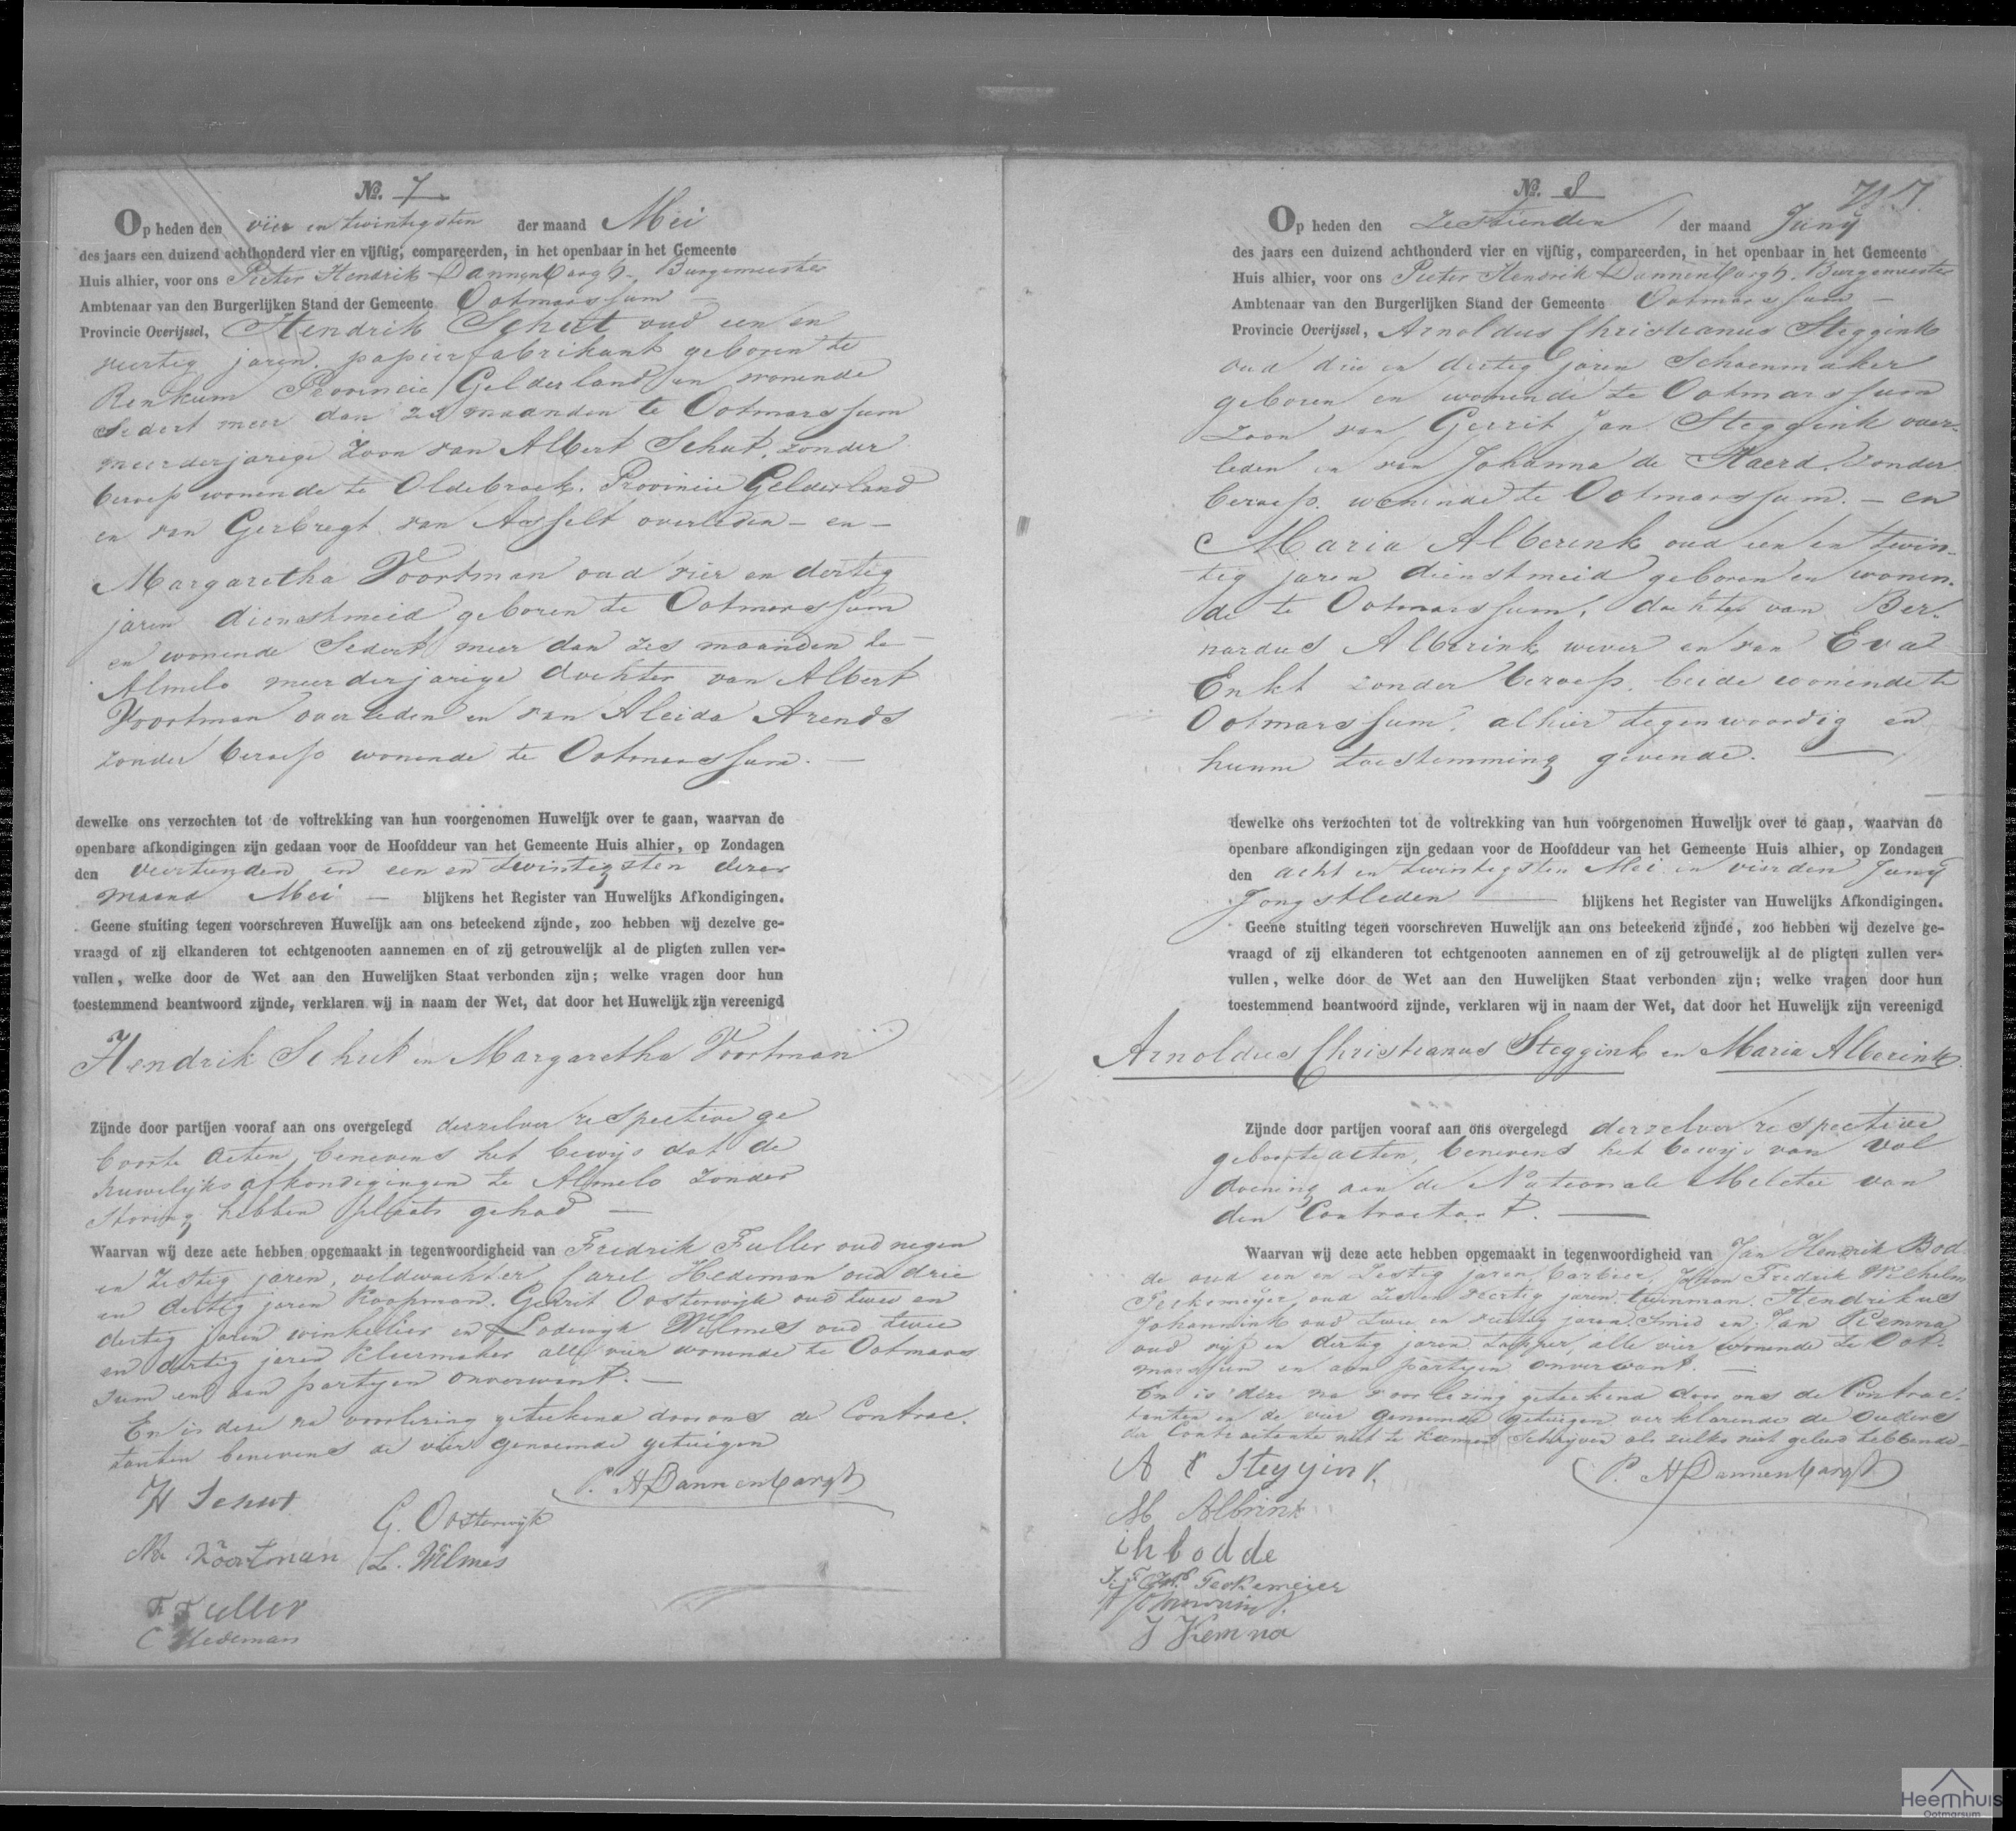 No. 7
Op heden den vier en twintigsten der maand Mei
des jaars een duizend achthonderd vier en vijftig, compareerden, in het openbaar in het Gemeente
Huis alhier, voor ons Pieter Hendrik Dannenbargh. Burgemeester
Ambtenaar van den Burgerlijken Stand der Gemeente Ootmarssum —
Provincie Overijssel, Hendrik Schut oud een en
veertig jaren, papierfabrikant geboren te
Renkum Provincie Gelderland en wonende
sedert meer dan zes maanden te Ootmarssum
meerderjarige zoon van Albert Schut, zonder
beroep wonende te Oldebroek. Provincie Gelderland
en van Gerbregt van Asselt overleden — en —
Margaretha Voortman oud vier en dertig
jaren dienstmeid geboren te Ootmarssum
en wonende sedert meer dan zes maanden te
Almelo meerderjarige dochter van Albert
Voortman overleden en van Aleida Arends
zonder beroep wonende te Ootmarssum. —
dewelke ons verzochten tot de voltrekking van hun voorgenomen Huwelijk over te gaan, waarvan de
openbare afkondigingen zijn gedaan voor de Hoofddeur van het Gemeente Huis alhier, op Zondagen
den veertienden en een en twintigsten dezer
maand Mei — blijkens het Register van Huwelijks Afkondigingen.
Geene stuiting tegen voorschreven Huwelijk aan ons beteekend zijnde, zoo hebben wij dezelve ge-
vraagd of zij elkanderen tot echtgenooten aannemen en of zij getrouwelijk al de pligten zullen ver-
vullen, welke door de Wet aan den Huwelijken Staat verbonden zijn; welke vragen door hun
toestemmend beantwoord zijnde, verklaren wij in naam der Wet, dat door het Huwelijk zijn vereenigd
Hendrik Schut en Margaretha Voortman
Zijnde door partijen vooraf aan ons overgelegd derzelver respective ge
boorte acten, benevens het bewijs dat de
huwelijks afkondigingen te Almelo zonder
storing hebben plaats gehad —
Waarvan wij deze acte hebben opgemaakt in tegenwoordigheid van Fredrik Fuller oud negen
en zestig jaren, veldwachter, Carel Hedeman oud drie
en dertig jaren Koopman. Gerrit Oosterwijk oud twee en
dertig jaren winkelier en Lodewijk Wilmes oud twee
en dertig jaren kleermaker alle vier wonende te Ootmars
sum en aan partyen onverwant. —
En is deze na voorlezing geteekend door ons de Contrac.
tanten benevens de vier genoemde getuigen
P. H Dannenbargh
H Schut
G. Oosterwijk
M. Voortman
L. Wilmes
F. Fuller
C Hedeman
No. 8
Op heden den zestienden der maand Juny
des jaars een duizend achthonderd vier en vijftig, compareerden, in het openbaar in het Gemeente
Huis alhier, voor ons Pieter Hendrik Dannenbargh. Burgemeester
Ambtenaar van den Burgerlijken Stand der Gemeente Ootmarssum —
Provincie Overijssel, Arnoldus Christianus Steggink
oud drie en dertig jaren Schoenmaker
geboren en wonende te Ootmarssum
zoon van Gerrit Jan Steggink over-
leden en van Johanna de Haerd, zonder
beroep. wonende te Ootmarssum. — en
Maria Alberink oud een en twin-
tig jaren dienstmeid geboren en wonen-
de te Ootmarssum, dochter van Ber-
nardus Alberink wever en van Eva
Enkt zonder beroep. beide wonende te
Ootmarssum, alhier tegenwoordig en
hunne toestemming gevende. —
dewelke ons verzochten tot de voltrekking van hun voorgenomen Huwelijk over te gaan, waarvan de
openbare afkondigingen zijn gedaan voor de Hoofddeur van het Gemeente Huis alhier, op Zondagen
den acht en twintigsten Mei en vierden Juny
Jongstleden — blijkens het Register van Huwelijks Afkondigingen.
Geene stuiting tegen voorschreven Huwelijk aan ons beteekend zijnde, zoo hebben wij dezelve ge-
vraagd of zij elkanderen tot echtgenooten aannemen en of zij getrouwelijk al de pligten zullen ver-
vullen, welke door de Wet aan den Huwelijken Staat verbonden zijn; welke vragen door hun
toestemmend beantwoord zijnde, verklaren wij in naam der Wet, dat door het Huwelijk zijn vereenigd
Arnoldus Christianus Steggink en Maria Alberink
Zijnde door partijen vooraf aan ons overgelegd derzelver respective
geboorteacten, benevens het bewijs van vol
doening aan de Nationale Melitie van
den Contractant. —
Waarvan wij deze acte hebben opgemaakt in tegenwoordigheid van Jan Hendrik Bod
de oud een en zestig jaren, barbier, Johan Fredrik Wilhelm
Teekemeijer oud zes en veertig jaren tuinman. Hendrikus
Johannink oud twee en veertig jaren Smid en Jan Kemna
oud vijf en dertig jaren tapper, alle vier wonende te Oot-
marssum en aan partyen onverwant. —
En is deze na voorlezing geteekend door ons de Contrac-
tanten en de vier genoemde getuigen verklarende de ouders
der Contractante niet te kunnen schrijven als zulks niet geleerd hebbende —
A C Steggink
P. H Dannenbargh
M Albrink
ih bodde
Teekemeier
J Kemna
Heemhuis
Ootmarsum